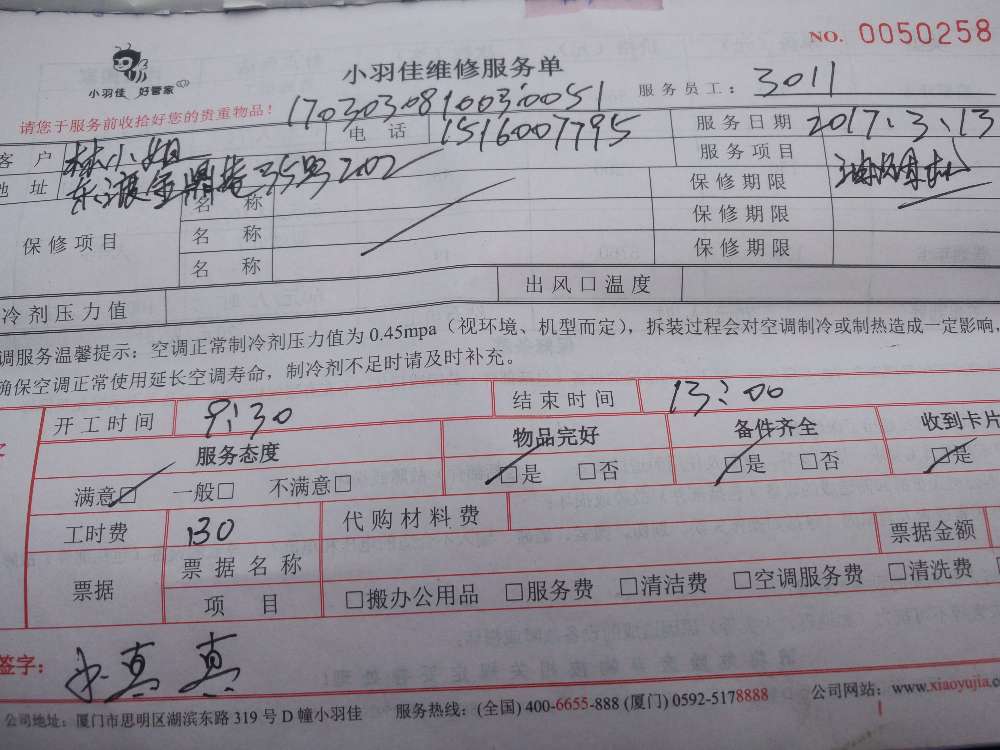 NO. 0050258
小羽佳 好管家
小羽佳维修服务单
服务员工： 3011
请您于服务前收拾好您的贵重物品！ 170303081003 0051
客 户 林小姐 电 话 1516007795 服务日期 2017.3.13
地 址 东渡金鼎 35号202 服务项目
保修项目 名 称 保修期限
名 称 保修期限
名 称 保修期限
冷剂压力值 出风口温度
调服务温馨提示：空调正常制冷剂压力值为 0.45mpa（视环境、机型而定），拆装过程会对空调制冷或制热造成一定影响，
确保空调正常使用延长空调寿命，制冷剂不足时请及时补充。
开工时间 9:30 结束时间 13:00
服务态度 物品完好 备件齐全 收到卡片
满意□ 一般□ 不满意□ □是 □否 □是 □否 □是
工时费 130 代购材料费
票据 票据名称 票据金额
项 目 □搬办公用品 □服务费 □清洁费 □空调服务费 □清洗费
签字： 真真
公司地址：厦门市思明区湖滨东路 319 号 D 幢小羽佳 服务热线：(全国) 400-6655-888 (厦门) 0592-5178888 公司网站：www.xiaoyujia.c